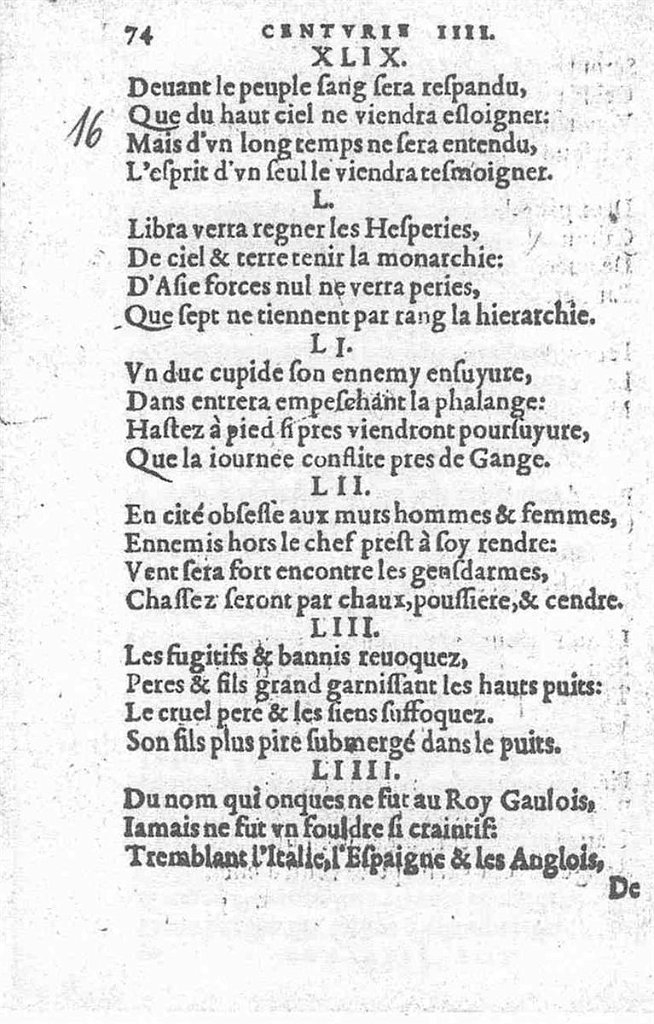 74 CENTVRIE IIII.
XLIX.
Deuant le peuple sang sera respandu,
Que du haut ciel ne viendra esloigner:
16
Mais d'vn long temps ne sera entendu,
L'esprit d'vn seul le viendra tesmoigner.
L.
Libra verra regner les Hesperies,
De ciel & terre tenir la monarchie:
D'Asie forces nul ne verra peries,
Que sept ne tiennent par rang la hierarchie.
LI.
Vn duc cupide son ennemy ensuyure,
Dans entrera empeschant la phalange:
Hastez à pied si pres viendront poursuyure,
Que la iournee conflite pres de Gange.
LII.
En cité obsesse aux murs hommes & femmes,
Ennemis hors le chef prest à soy rendre:
Vent sera fort encontre les gensdarmes,
Chassez seront par chaux, poussiere, & cendre.
LIII.
Les fugitifs & bannis reuoquez,
Peres & fils grand garnissant les hauts puits:
Le cruel pere & les siens suffoquez.
Son fils plus pire submergé dans le puits.
LIIII.
Du nom qui onques ne fut au Roy Gaulois,
Iamais ne fut vn fouldre si craintif:
Tremblant l'Italie, l'Espaigne & les Anglois,
De